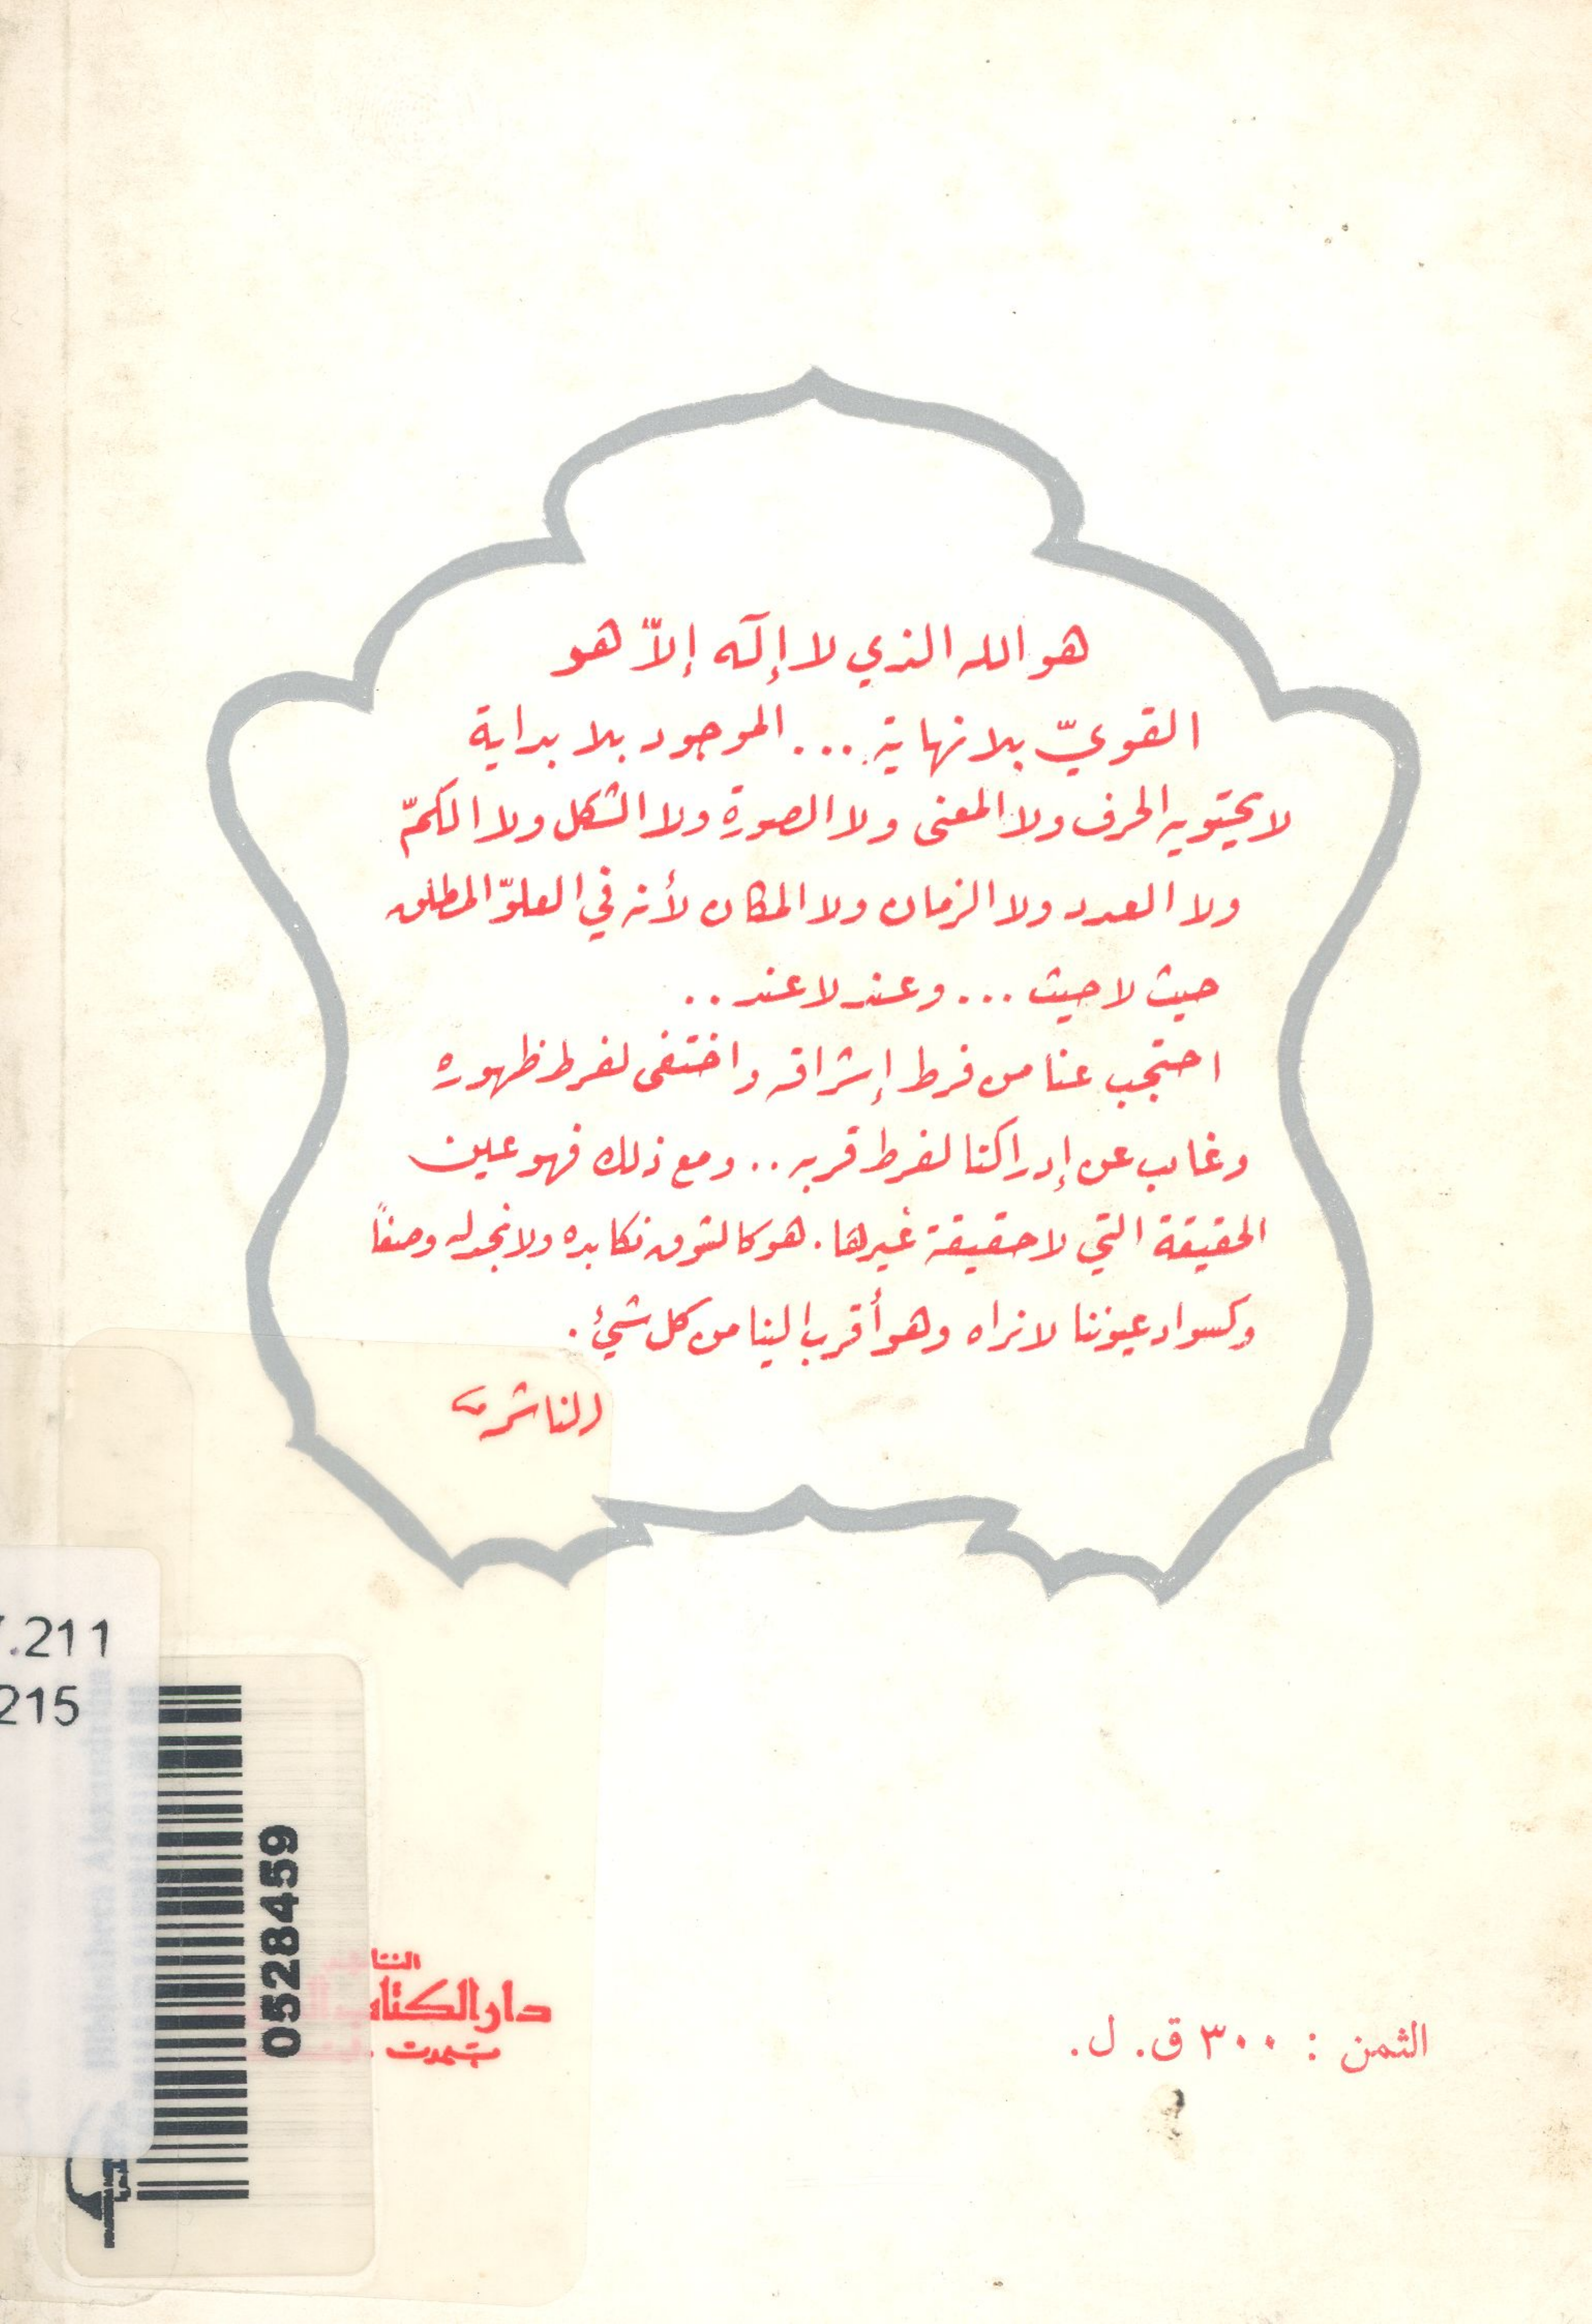 هو الله الذي لا إلٓه إلاّ هو
القويّ بلا نهاية ... الموجود بلا بداية
لا يحتويه الحرف ولا المعنى ولا الصورة ولا الشكل ولا الكمّ
ولا العدد ولا الزمان ولا المكان لأنه في العلوّ المطلق
حيث لا حيث ... وعند لا عند ..
احتجب عنا من فرط إشراقه واختفى لفرط ظهوره
وغاب عن إدراكنا لفرط قربه .. ومع ذلك فهو عين
الحقيقة التي لا حقيقة غيرها . هو كالشوق نكابده ولا نجد له وصفاً
وكسواد عيوننا لا نراه وهو أقرب الينا من كل شيئ .
الناشر
.211
215
0528459
دار الكتاب
الثمن : ٣٠٠ ق. ل.